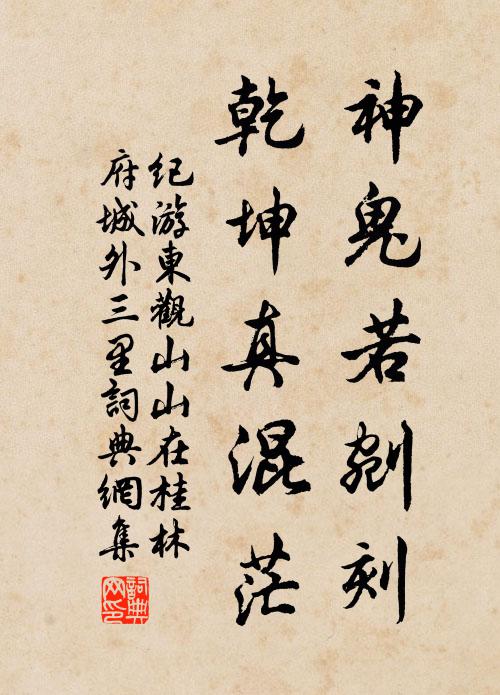 神鬼若剜刻
乾坤真混茫
紀游東觀山山在桂林
府城外三里詞典網集
詞典网印